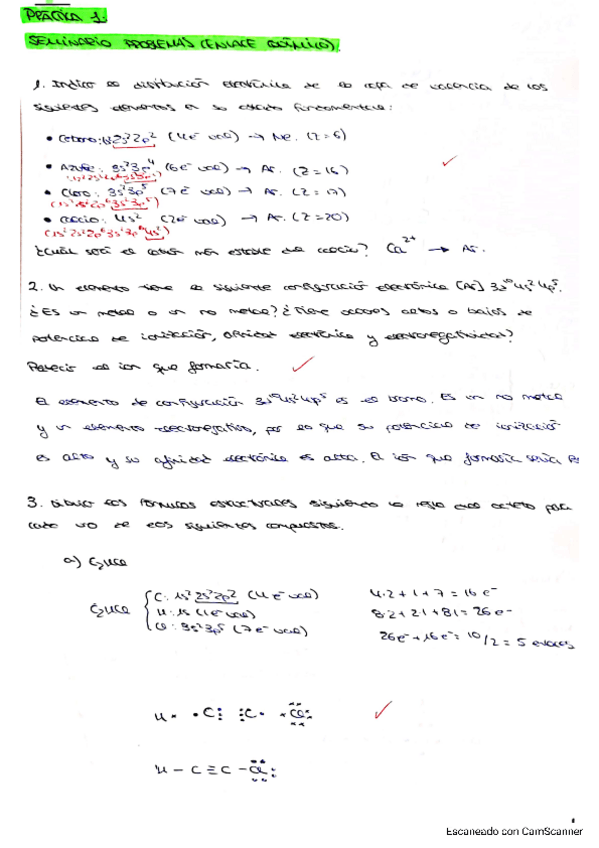 PRÁCTICA 1.
SEMINARIO PROBLEMAS (ENLACE QUÍMICO).
1. Indica la distribución electrónica de la capa de valencia de los
siguientes elementos en su estado fundamental:
• Carbono: 1s²2s²2p² (4e⁻ val) → Ne. (Z=6)
• Azufre: 3s²3p⁴ (6e⁻ val) → Ar. (Z=16)
(1s²2s²2p⁶3s²3p⁴)
• Cloro: 3s²3p⁵ (7e⁻ val) → Ar. (Z=17)
(1s²2s²2p⁶3s²3p⁵)
• Calcio: 4s² (2e⁻ val) → Ar. (Z=20)
(1s²2s²2p⁶3s²3p⁶4s²)
¿Cuál será el catión más estable del calcio? Ca²⁺ → Ar.
2. Un elemento tiene la siguiente configuración electrónica [Ar] 3d¹⁰4s²4p⁵.
¿Es un metal o un no metal? ¿Tiene valores altos o bajos de
potencial de ionización, afinidad electrónica y electronegatividad?
Predecir el ion que formaría.
El elemento de configuración 3d¹⁰4s²4p⁵ es el bromo. Es un no metal
y un elemento electronegativo, por lo que su potencial de ionización
es alto y su afinidad electrónica es alta. El ion que formaría sería Br
3. Dibuja las fórmulas estructurales siguiendo la regla del octeto para
cada uno de los siguientes compuestos.
a) C₂HCl
C₂HCl { C: 1s²2s²2p² (4e⁻ val)
H: 1s (1e⁻ val)
Cl: 3s²3p⁵ (7e⁻ val)
4·2+1+7=16e⁻
8·2+2·1+8·1=26e⁻
26e⁻+16e⁻=10/2=5 enlaces
H· ·C⋮ ⋮C· ·Cl
H–C≡C–Cl
Escaneado con CamScanner